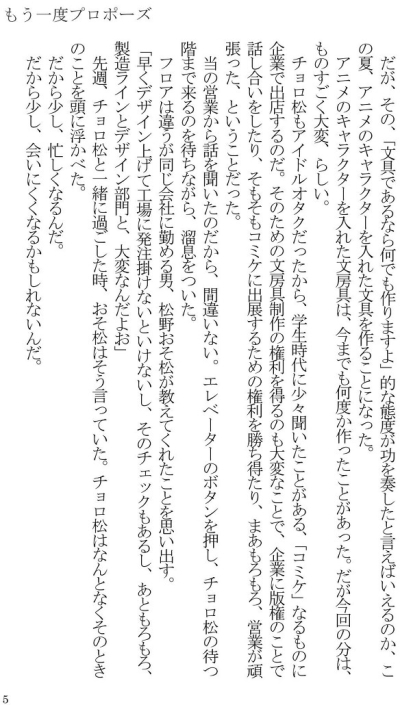 もう一度プロポーズ
だが、その、「文具であるなら何でも作りますよ」的な態度が功を奏したと言えばいえるのか、こ
の夏、アニメのキャラクターを入れた文具を作ることになった。
アニメのキャラクターを入れた文房具は、今までも何度か作ったことがあった。だが今回の分は、
ものすごく大変、らしい。
チョロ松もアイドルオタクだったから、学生時代に少々聞いたことがある、「コミケ」なるものに
企業で出店するのだ。そのための文房具制作の権利を得るのも大変なことで、企業に版権のことで
話し合いをしたり、そもそもコミケに出展するための権利を勝ち得たり、まあもろもろ、営業が頑
張った、ということだった。
当の営業から話を聞いたのだから、間違いない。エレベーターのボタンを押し、チョロ松の待つ
階まで来るのを待ちながら、溜息をついた。
フロアは違うが同じ会社に勤める男、松野おそ松が教えてくれたことを思い出す。
「早くデザイン上げて工場に発注掛けないといけないし、そのチェックもあるし、あともろもろ、
製造ラインとデザイン部門と、大変なんだよお」
先週、チョロ松と一緒に過ごした時、おそ松はそう言っていた。チョロ松はなんとなくそのとき
のことを頭に浮かべた。
だから少し、忙しくなるんだ。
だから少し、会いにくくなるかもしれないんだ。
5